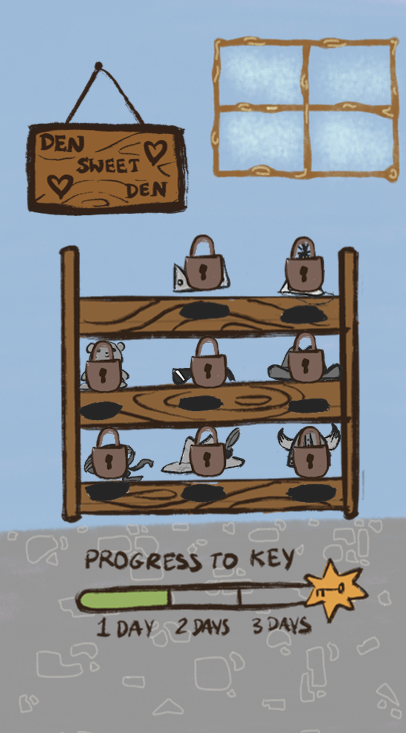 DEN
SWEET
DEN
PROGRESS TO KEY
1 DAY 2 DAYS 3 DAYS